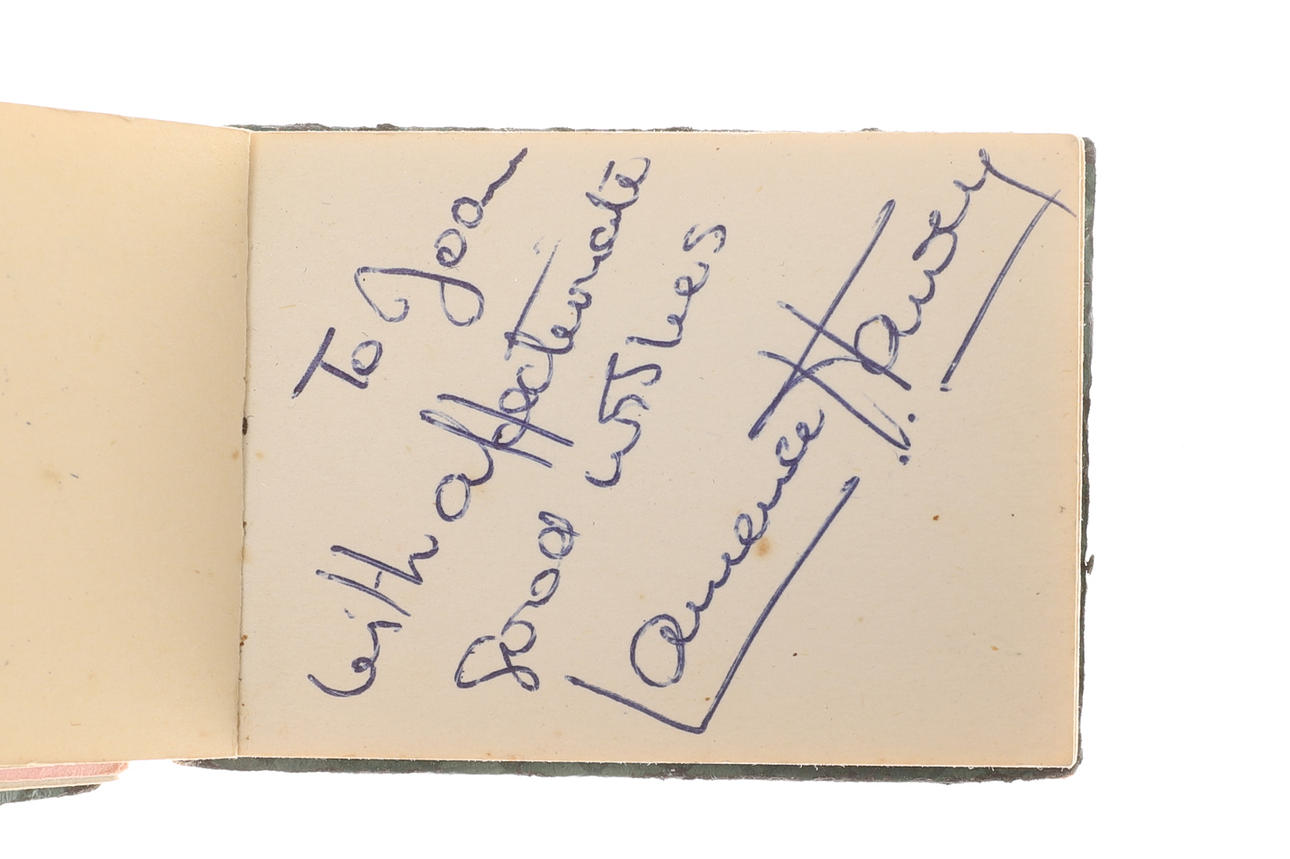 To Joan
with affectionate
Good wishes
Laurence Harvey